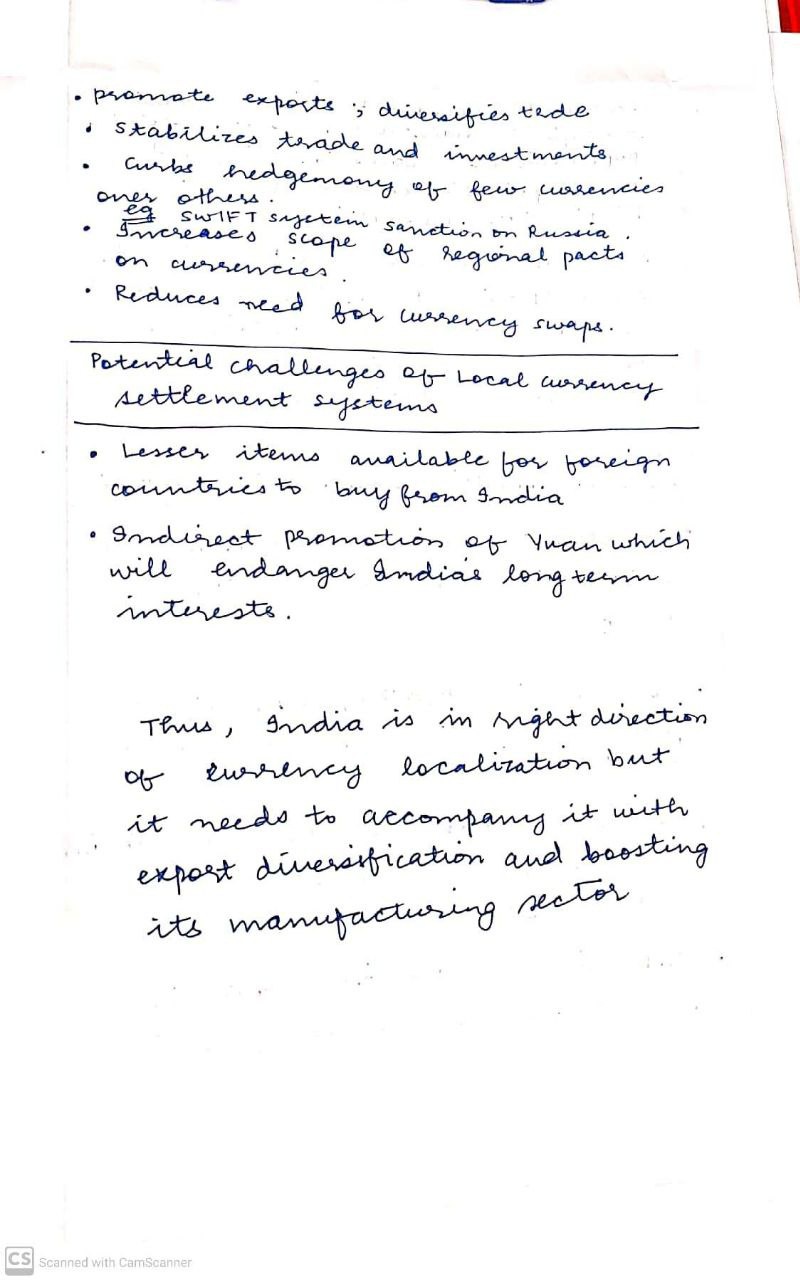 • promote exports ; diversifies trde
• stabilizes trade and investments,
• curbs hedgemony of few currencies
over others.
eg SWIFT system sanction on Russia.
• Increases scope of regional pacts
on currencies.
• Reduces need for currency swaps.
Potential challenges of Local currency
settlement systems
• Lesser items available for foreign
countries to buy from India
• Indirect promotion of Yuan which
will endanger India's long term
interests.
Thus, India is in right direction
of currency localization but
it needs to accompany it with
export diversification and boosting
its manufacturing sector
CS Scanned with CamScanner